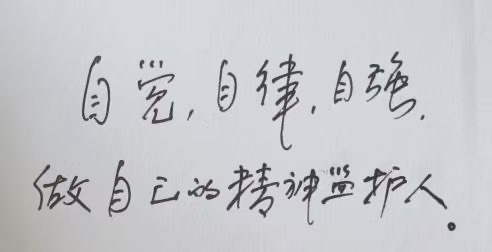 自觉,自律,自强.
做自己的精神监护人。